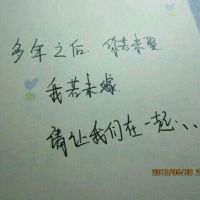 多年之后 你若未娶
我若未嫁
请让我们在一起、、、
2013/05/30 2